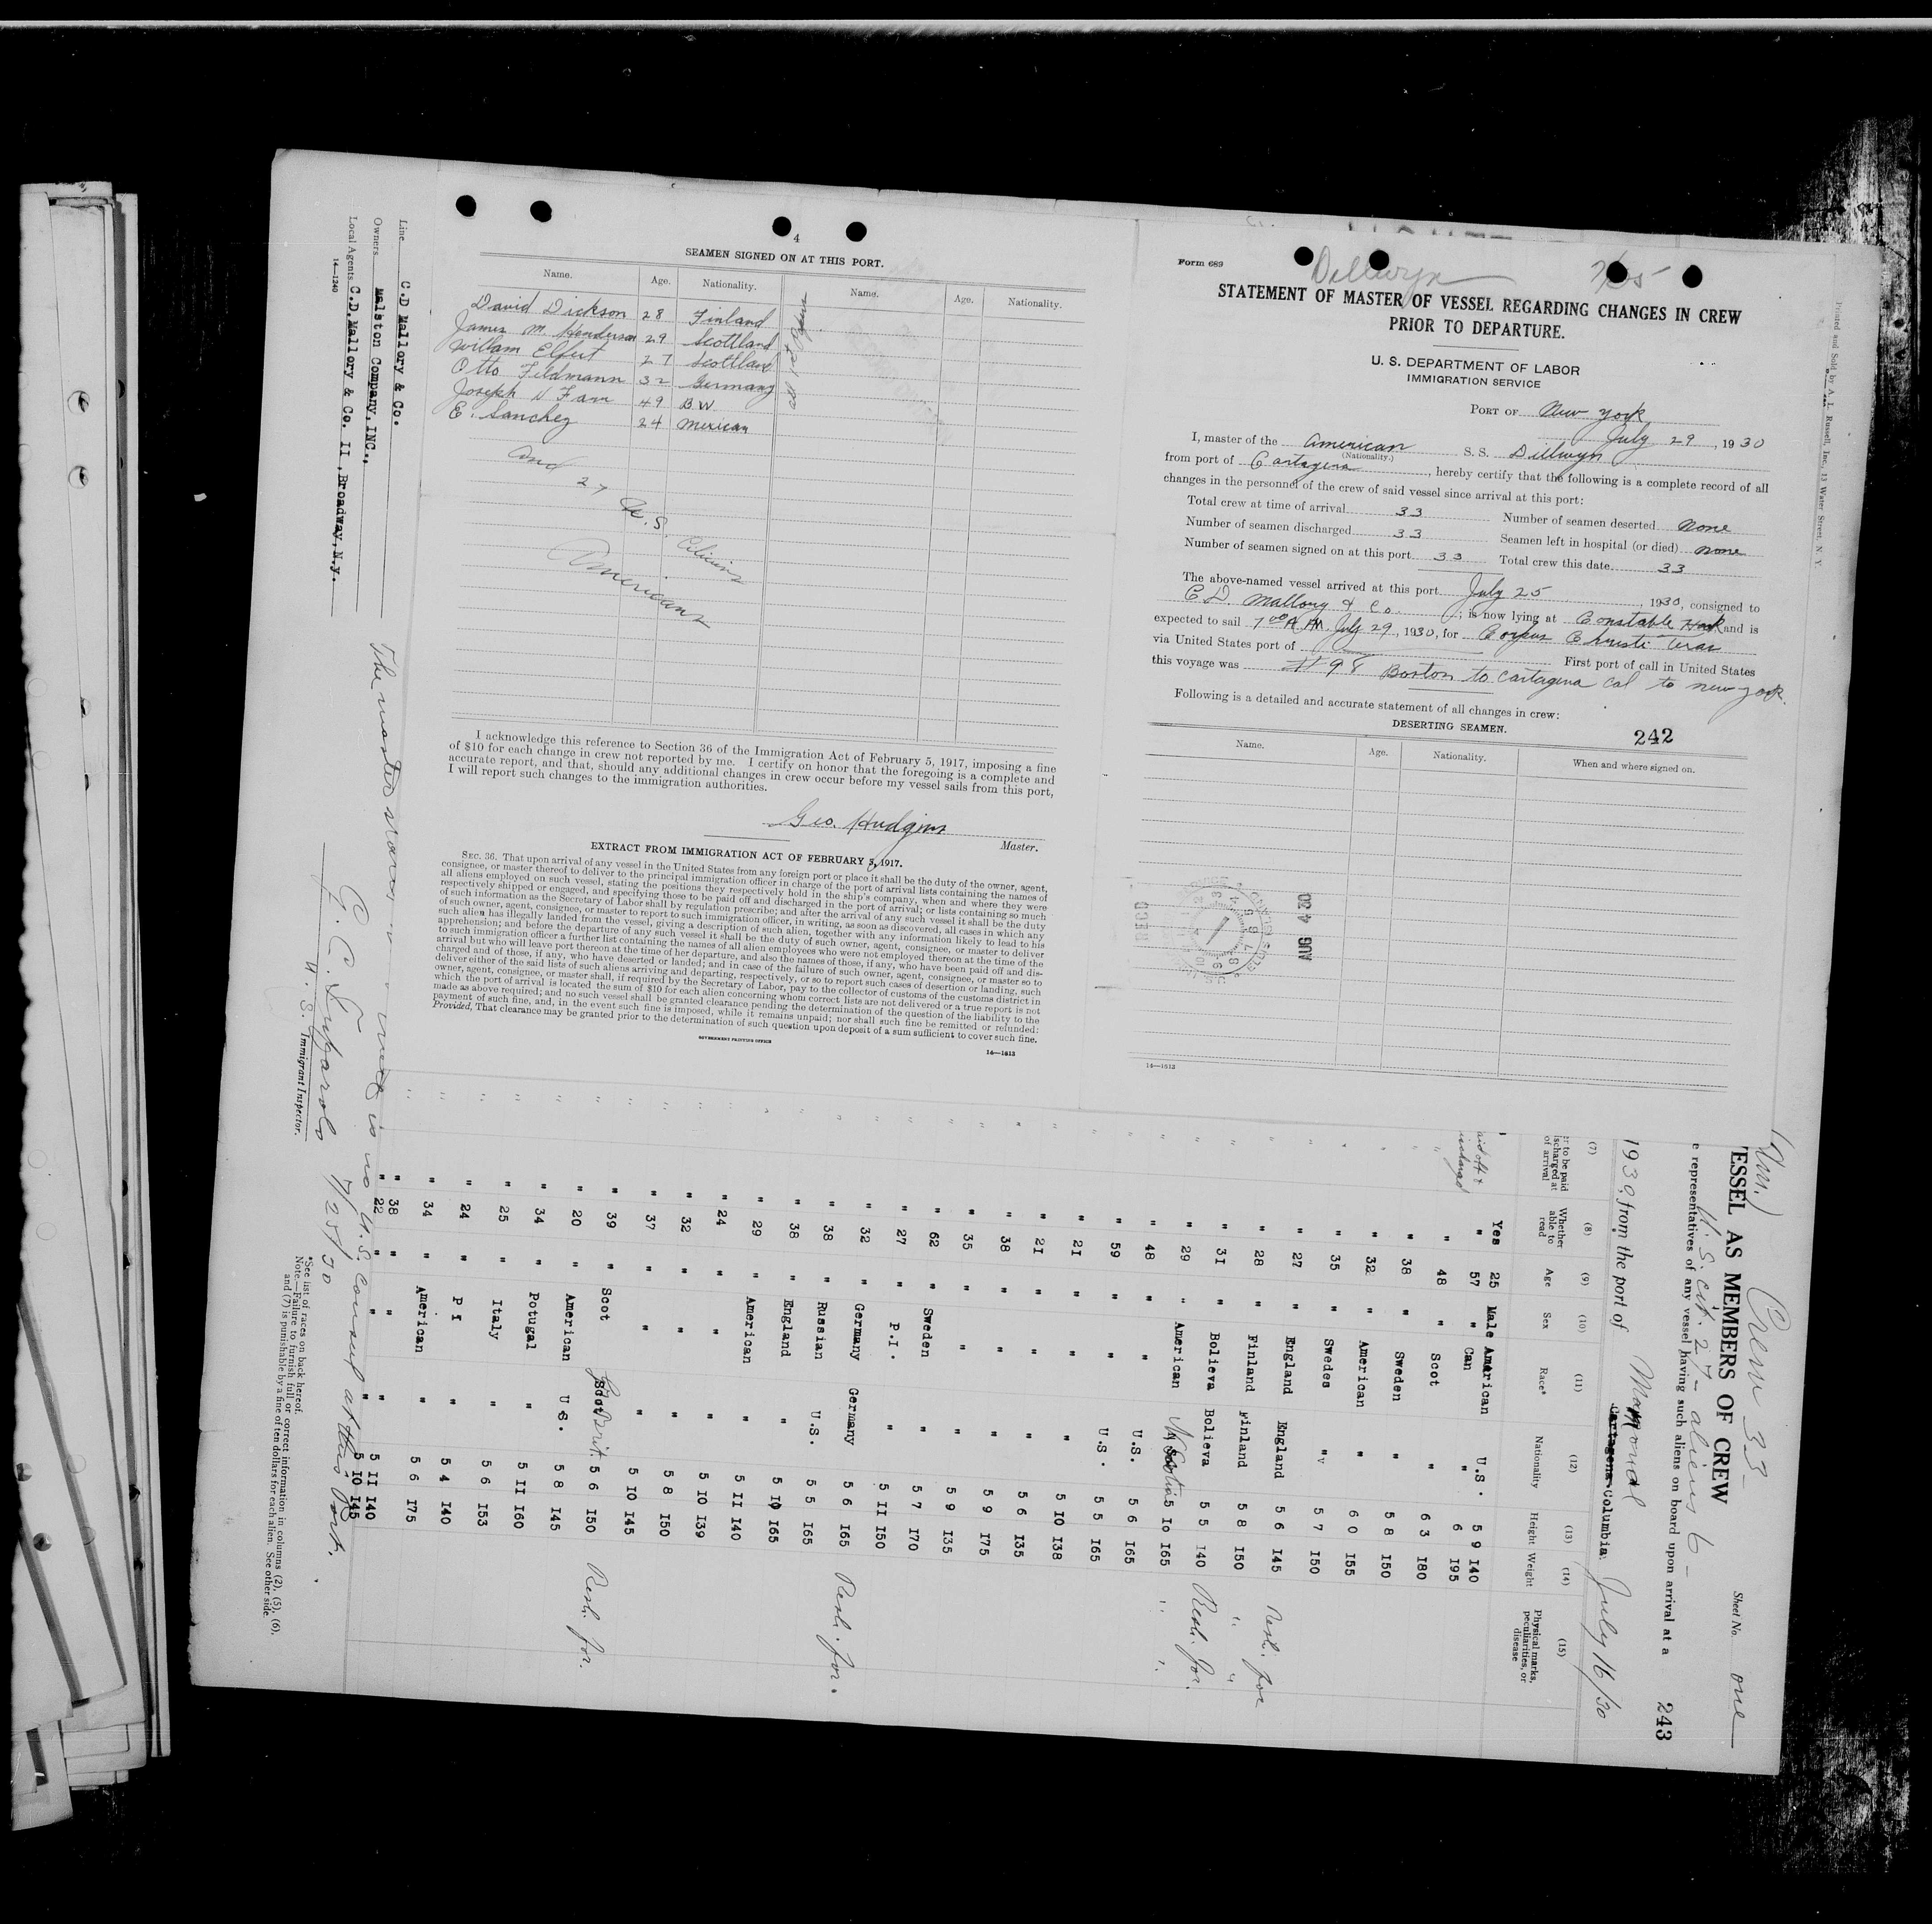 4
SEAMEN SIGNED ON AT THIS PORT.
Name. Age. Nationality. Name. Age. Nationality.
David Dickson 28 Finland
James M. Henderson 29 Scottland
William Elfert 27 Scottland
Otto Feldmann 32 Germany
Joseph D Fam 49 B.W.
E. Sanchez 24 Mexican
and 27 U.S. Citicins
Americans
I acknowledge this reference to Section 36 of the Immigration Act of February 5, 1917, imposing a fine
of $10 for each change in crew not reported by me. I certify on honor that the foregoing is a complete and
accurate report, and that, should any additional changes in crew occur before my vessel sails from this port,
I will report such changes to the immigration authorities.
Geo. Hudgins
Master.
EXTRACT FROM IMMIGRATION ACT OF FEBRUARY 5, 1917.
SEC. 36. That upon arrival of any vessel in the United States from any foreign port or place it shall be the duty of the owner, agent,
consignee, or master thereof to deliver to the principal immigration officer in charge of the port of arrival lists containing the names of
all aliens employed on such vessel, stating the positions they respectively hold in the ship's company, when and where they were
respectively shipped or engaged, and specifying those to be paid off and discharged in the port of arrival; or lists containing so much
of such information as the Secretary of Labor shall by regulation prescribe; and after the arrival of any such vessel it shall be the duty
of such owner, agent, consignee, or master to report to such immigration officer, in writing, as soon as discovered, all cases in which any
such alien has illegally landed from the vessel, giving a description of such alien, together with any information likely to lead to his
apprehension; and before the departure of any such vessel it shall be the duty of such owner, agent, consignee, or master to deliver
to such immigration officer a further list containing the names of all alien employees who were not employed thereon at the time of the
arrival but who will leave port thereon at the time of her departure, and also the names of those, if any, who have been paid off and dis-
charged and of those, if any, who have deserted or landed; and in case of the failure of such owner, agent, consignee, or master so to
deliver either of the said lists of such aliens arriving and departing, respectively, or so to report such cases of desertion or landing, such
owner, agent, consignee, or master shall, if required by the Secretary of Labor, pay to the collector of customs of the customs district in
which the port of arrival is located the sum of $10 for each alien concerning whom correct lists are not delivered or a true report is not
made as above required; and no such vessel shall be granted clearance pending the determination of the question of the liability to the
payment of such fine, and, in the event such fine is imposed, while it remains unpaid; nor shall such fine be remitted or refunded:
Provided, That clearance may be granted prior to the determination of such question upon deposit of a sum sufficient to cover such fine.
GOVERNMENT PRINTING OFFICE
14—1613
Form 689
Dillwyn 7/25
STATEMENT OF MASTER OF VESSEL REGARDING CHANGES IN CREW
PRIOR TO DEPARTURE.
U. S. DEPARTMENT OF LABOR
IMMIGRATION SERVICE
PORT OF New York
July 29, 1930
I, master of the American S. S. Dillwyn
(Nationality.)
from port of Cartagena, hereby certify that the following is a complete record of all
changes in the personnel of the crew of said vessel since arrival at this port:
Total crew at time of arrival 33 Number of seamen deserted None
Number of seamen discharged 33 Seamen left in hospital (or died) none
Number of seamen signed on at this port 33 Total crew this date 33
The above-named vessel arrived at this port July 25, 1930, consigned to
C.D. Mallory & Co.; is now lying at Constable Hook and is
expected to sail 7 00 A.M. July 29, 1930, for Corpus Christi Texas
via United States port of
First port of call in United States
this voyage was #98 Boston to Cartagena Col to new york
Following is a detailed and accurate statement of all changes in crew:
DESERTING SEAMEN.
242
Name. Age. Nationality. When and where signed on.
AUG 4 30
14—1613
Printed and Sold by A. L. Russell, Inc., 13 Water Street, N. Y.
Line C.D Mallory & Co.
Owners Malston Company, INC.,
Local Agents C.D. Mallory & Co. II, Broadway, N.y.
14—1240
(Am.) Crew 33 -
Sheet No. one
VESSEL AS MEMBERS OF CREW
U.S. cit. 27 - aliens 6 -
e representatives of any vessel having such aliens on board upon arrival at a
243
1930, from the port of Mamonal Cartagena Columbia. July 16/30
(7) (8) (9) (10) (11) (12) (13) (14) (15)
er to be paid
ischarged at
of arrival
Whether able to read
Age
Sex
Race*
Nationality
Height
Weight
Physical marks, peculiarities, or disease
aid off &
Yes 25 Male American U.S. 5 9 140
" 57 " Can " 6 195
" 48 " Scot " 6 3 180
" 38 " Sweden " 5 8 150
" 32 " American " 6 0 155
" 35 " Swedes " 5 7 150
" 27 " England England 5 6 145 Resh. for
" 28 " Finland Finland 5 8 150 " "
" 31 " Bolieva Bolieva 5 5 140 Resh. for.
" 29 " American N. Scotia 5 10 165 " "
" 48 " " U.S. 5 6 165
" 59 " " U.S. 5 5 165
" 21 " " " 5 10 138
" 21 " " " 5 6 135
" 38 " " " 5 9 175
" 35 " " " 5 9 135
" 62 " Sweden " 5 7 170
" 27 " P.I. " 5 11 150
" 32 " Germany Germany 5 6 165 Resh. for.
" 38 " Russian U.S. 5 5 165
" 38 " England " 5 10 165
" 29 " American " 5 11 140
" 24 " " " 5 10 139
" 32 " " " 5 8 150
" 37 " " " 5 10 145
" 39 " Scot Gr. Brit. 5 6 150 Resh. for.
" 20 " American U.S. 5 8 145
" 34 " Potugal " 5 11 160
" 25 " Italy " 5 6 153
" 24 " P I " 5 4 140
" 34 " American " 5 6 175
" 38 " " " 5 11 140
" 22 " " " 5 10 145
is no U.S. Consul at this Port.
7/25/30
U. S. Immigrant Inspector.
*See list of races on back hereof.
Note.—Failure to furnish full or correct information in columns (2), (5), (6),
and (7) is punishable by a fine of ten dollars for each alien. See other side.